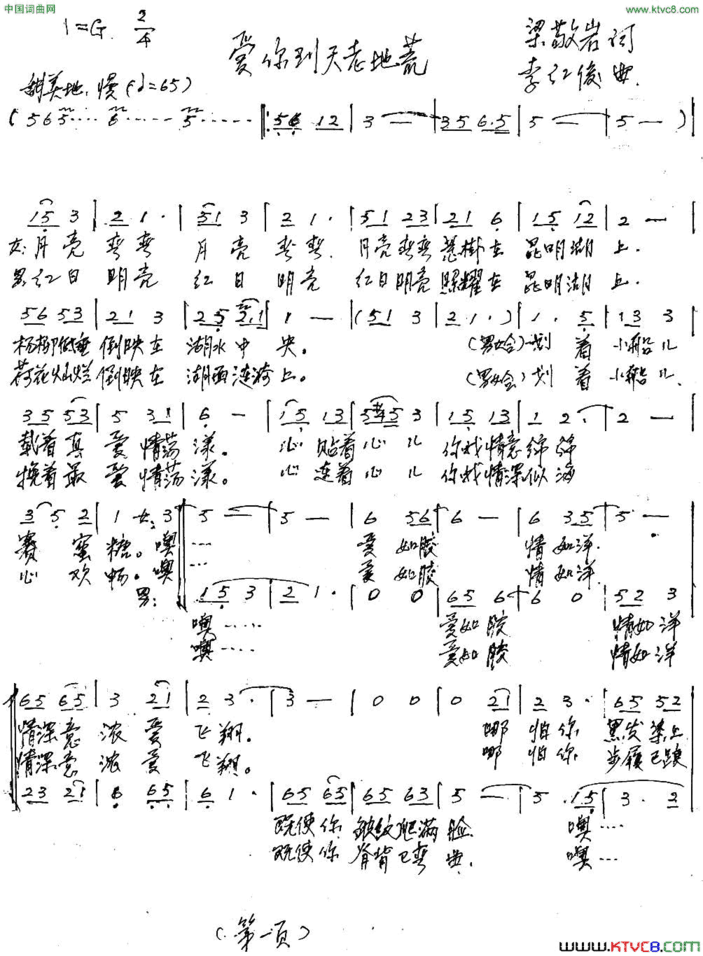 中国词曲网
www.ktvc8.com
1=G 2/4
爱你到天老地荒
梁敬岩词
李红俊曲
甜美地、慢(♩=65)
(565···· 6···· 5······ |: 56 12 | 3 — | 35 6·5 | 5 — | 5 — ) |
15 3 | 21· | 51 3 | 21· | 51 23 | 21 6 | 15 12 | 2 — |
女:月亮弯弯 月亮弯弯 月亮弯弯悬掛在昆明湖上.
男:红日明亮 红日明亮 红日明亮照耀在昆明湖上.
56 53 | 21 3 | 25 2·1 | 1 — | (51 3 | 21·) | 1· 5 | 13 3 |
杨柳低垂倒映在湖水中央。 (男女合)划着小船儿
荷花灿烂倒映在湖面涟漪上。 (男女合)划着小船儿.
35 53 | 5 31 | 6 — | 15 13 | 5453 | 15 13 | 12· | 2 — |
载着真爱情荡漾。 心贴着心儿 你我情意绵绵
挽着最爱情荡漾。 心连着心儿 你我情深似海
3 5 2 | 1 女:3 | 5 — | 5 — | 6 56 | 6 — | 6 35 | 5 — |
赛蜜糖。噢 ···· 爱如胶 情如洋.
心欢畅。噢 ···· 爱如胶 情如洋.
男: 15 3 | 21· | 0 0 | 65 6 | 6 0 | 52 3
噢···· 爱如胶 情如洋
噢···· 爱如胶 情如洋
65 65 | 3 21 | 23· | 3 — | 0 0 | 0 21 | 23· | 65 52 |
情深意浓爱飞翔。 哪怕你 黑发染上
情深意浓爱飞翔。 哪怕你 步履已踉
23 21 | 6 65 | 61· | 65 65 | 65 63 | 5 — | 5· 15 | 3· 2 |
既使你 皱纹爬满脸 噢····
既使你 脊背已弯曲. 噢····
(第一页)
www.KTVC8.com